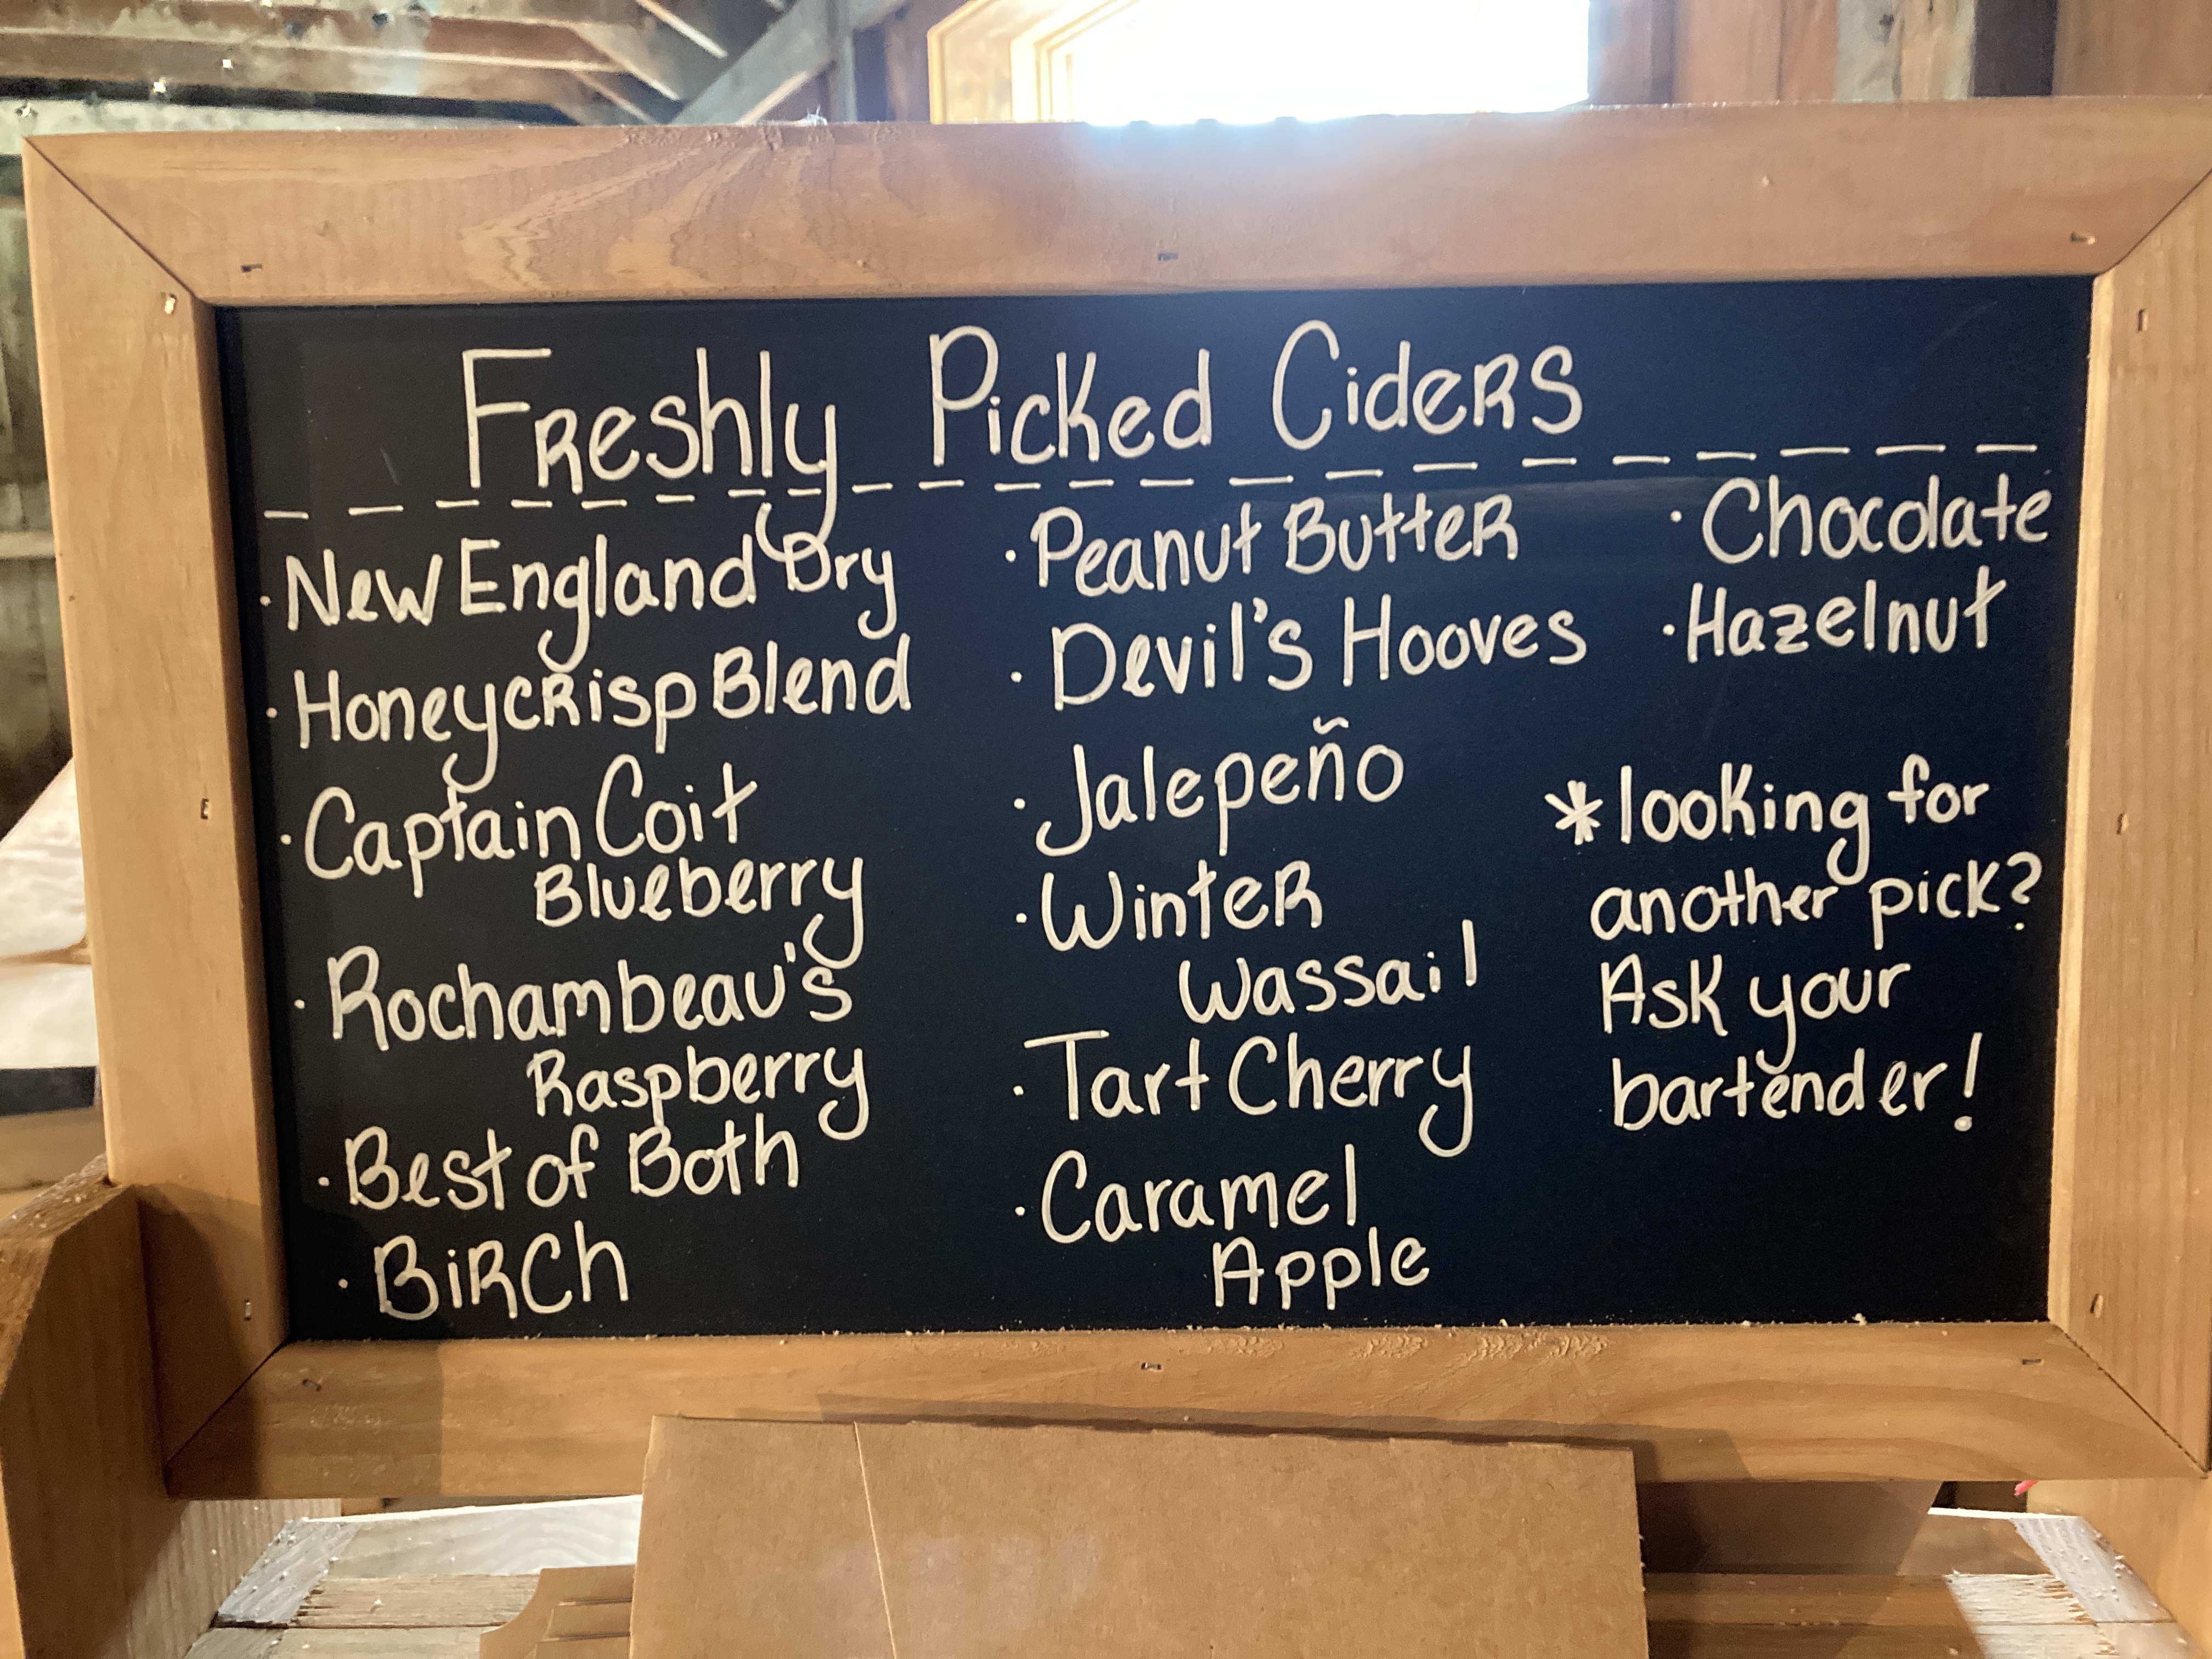 Freshly Picked Ciders
· New England Dry
· Honeycrisp Blend
· Captain Coit
Blueberry
· Rochambeau's
Raspberry
· Best of Both
· Birch
· Peanut Butter
· Devil's Hooves
· Jalepeño
· Winter
Wassail
· Tart Cherry
· Caramel
Apple
· Chocolate
· Hazelnut
*looking for
another pick?
Ask your
bartender!